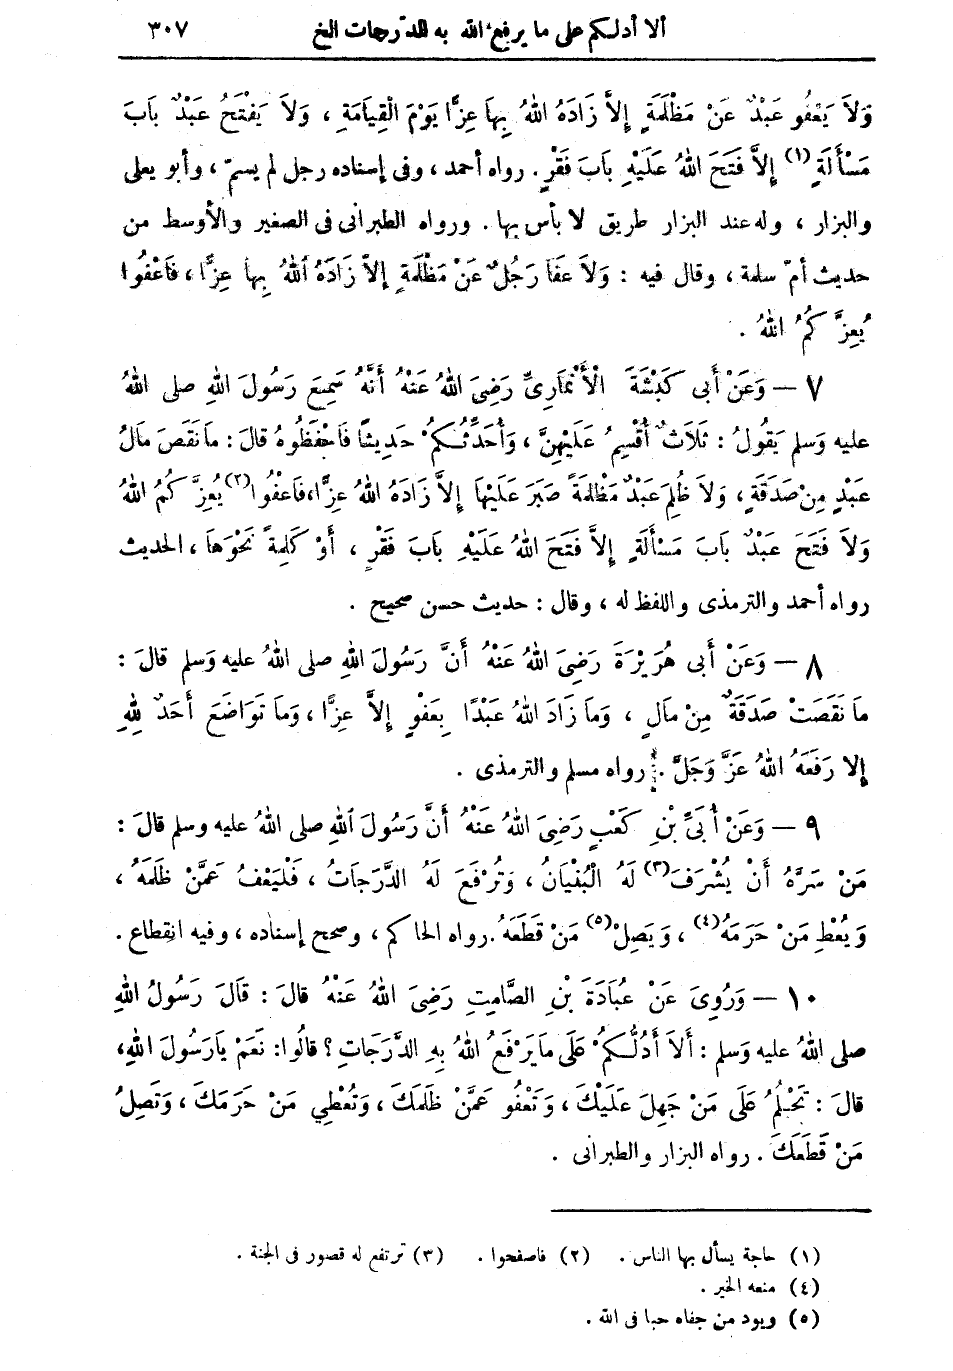 ألا أدلكم على ما يرفع الله به الدرجات الخ ٣٠٧
وَلاَ يَعْفُو عَبْدٌ عَنْ مَظْلَمَةٍ إِلاَّ زَادَهُ اللهُ بِهَا عِزًّا يَوْمَ الْقِيَامَةِ ، وَلاَ يَفْتَحُ عَبْدٌ بَابَ
مَسْأَلَةٍ (١) إِلاَّ فَتَحَ اللهُ عَلَيْهِ بَابَ فَقْرٍ . رواه أحمد ، وفى إسناده رجل لم يسمّ ، وأبو يعلى
والبزار ، وله عند البزار طريق لا بأس بها . ورواه الطبرانى فى الصغير والأوسط من
حديث أمّ سلمة ، وقال فيه : وَلاَ عَفَا رَجُلٌ عَنْ مَظْلَمَةٍ إِلاَّ زَادَهُ اللهُ بِهَا عِزًّا ، فَاعْفُوا
يُعِزَّكُمُ اللهُ .
٧ — وَعَنْ أَبى كَبْشَةَ الْأَنْمَارِىِّ رَضِىَ اللهُ عَنْهُ أَنَّهُ سَمِعَ رَسُولَ اللهِ صلى اللهُ
عليه وَسلم يَقُولُ : ثَلاَثٌ أُقْسِمُ عَلَيْهِنَّ ، وَأُحَدِّثُكُمْ حَدِيثًا فَاحْفَظُوهُ قالَ : مَا نَقَصَ مَالُ
عَبْدٍ مِنْ صَدَقَةٍ ، وَلاَ ظُلِمَ عَبْدٌ مَظْلَمَةً صَبَرَ عَلَيْهَا إِلاَّ زَادَهُ اللهُ عِزًّا ، فَاعْفُوا (٢) يُعِزَّكُمُ اللهُ
وَلاَ فَتَحَ عَبْدٌ بَابَ مَسْأَلَةٍ إِلاَّ فَتَحَ اللهُ عَلَيْهِ بَابَ فَقْرٍ ، أَوْ كَلِمَةً نَحْوَهَا ، الحديث
رواه أحمد والترمذى واللفظ له ، وقال : حديث حسن صحيح .
٨ — وَعَنْ أَبى هُرَيْرَةَ رَضِىَ اللهُ عَنْهُ أَنَّ رَسُولَ اللهِ صلى اللهُ عليه وَسلم قالَ :
مَا نَقَصَتْ صَدَقَةٌ مِنْ مَالٍ ، وَمَا زَادَ اللهُ عَبْدًا بِعَفْوٍ إِلاَّ عِزًّا ، وَمَا تَوَاضَعَ أَحَدٌ لِلهِ
إِلا رَفَعَهُ اللهُ عَزَّ وَجَلَّ . رواه مسلم والترمذى .
٩ — وَعَنْ أُبَىِّ بْنِ كَعْبٍ رَضِىَ اللهُ عَنْهُ أَنَّ رَسُولَ اللهِ صلى اللهُ عليه وسلم قالَ :
مَنْ سَرَّهُ أَنْ يُشْرَفَ (٣) لَهُ الْبُنْيَانُ ، وَتُرْفَعَ لَهُ الدَّرَجَاتُ ، فَلْيَعْفُ عَمَّنْ ظَلَمَهُ ،
وَيُعْطِ مَنْ حَرَمَهُ (٤) ، وَيَصِلْ (٥) مَنْ قَطَعَهُ . رواه الحاكم ، وصحح إسناده ، وفيه انقطاع .
١٠ — وَرُوِىَ عَنْ عُبَادَةَ بْنِ الصَّامِتِ رَضِىَ اللهُ عَنْهُ قالَ : قَالَ رَسُولُ اللهِ
صلى اللهُ عليه وَسلم : أَلاَ أَدُلُّكُمْ عَلَى مَا يَرْفَعُ اللهُ بِهِ الدَّرَجَاتِ ؟ قالُوا : نَعَمْ يَارَسُولَ اللهِ ،
قالَ : تَحْلُمُ عَلَى مَنْ جَهِلَ عَلَيْكَ ، وَتَعْفُو عَمَّنْ ظَلَمَكَ ، وَتُعْطِي مَنْ حَرَمَكَ ، وَتَصِلُ
مَنْ قَطَعَكَ . رواه البزار والطبرانى .
(١) حاجة يسأل بها الناس . (٢) فاصفحوا . (٣) ترتفع له قصور فى الجنة .
(٤) منعه الخير .
(٥) ويود من جفاه حبا فى الله .